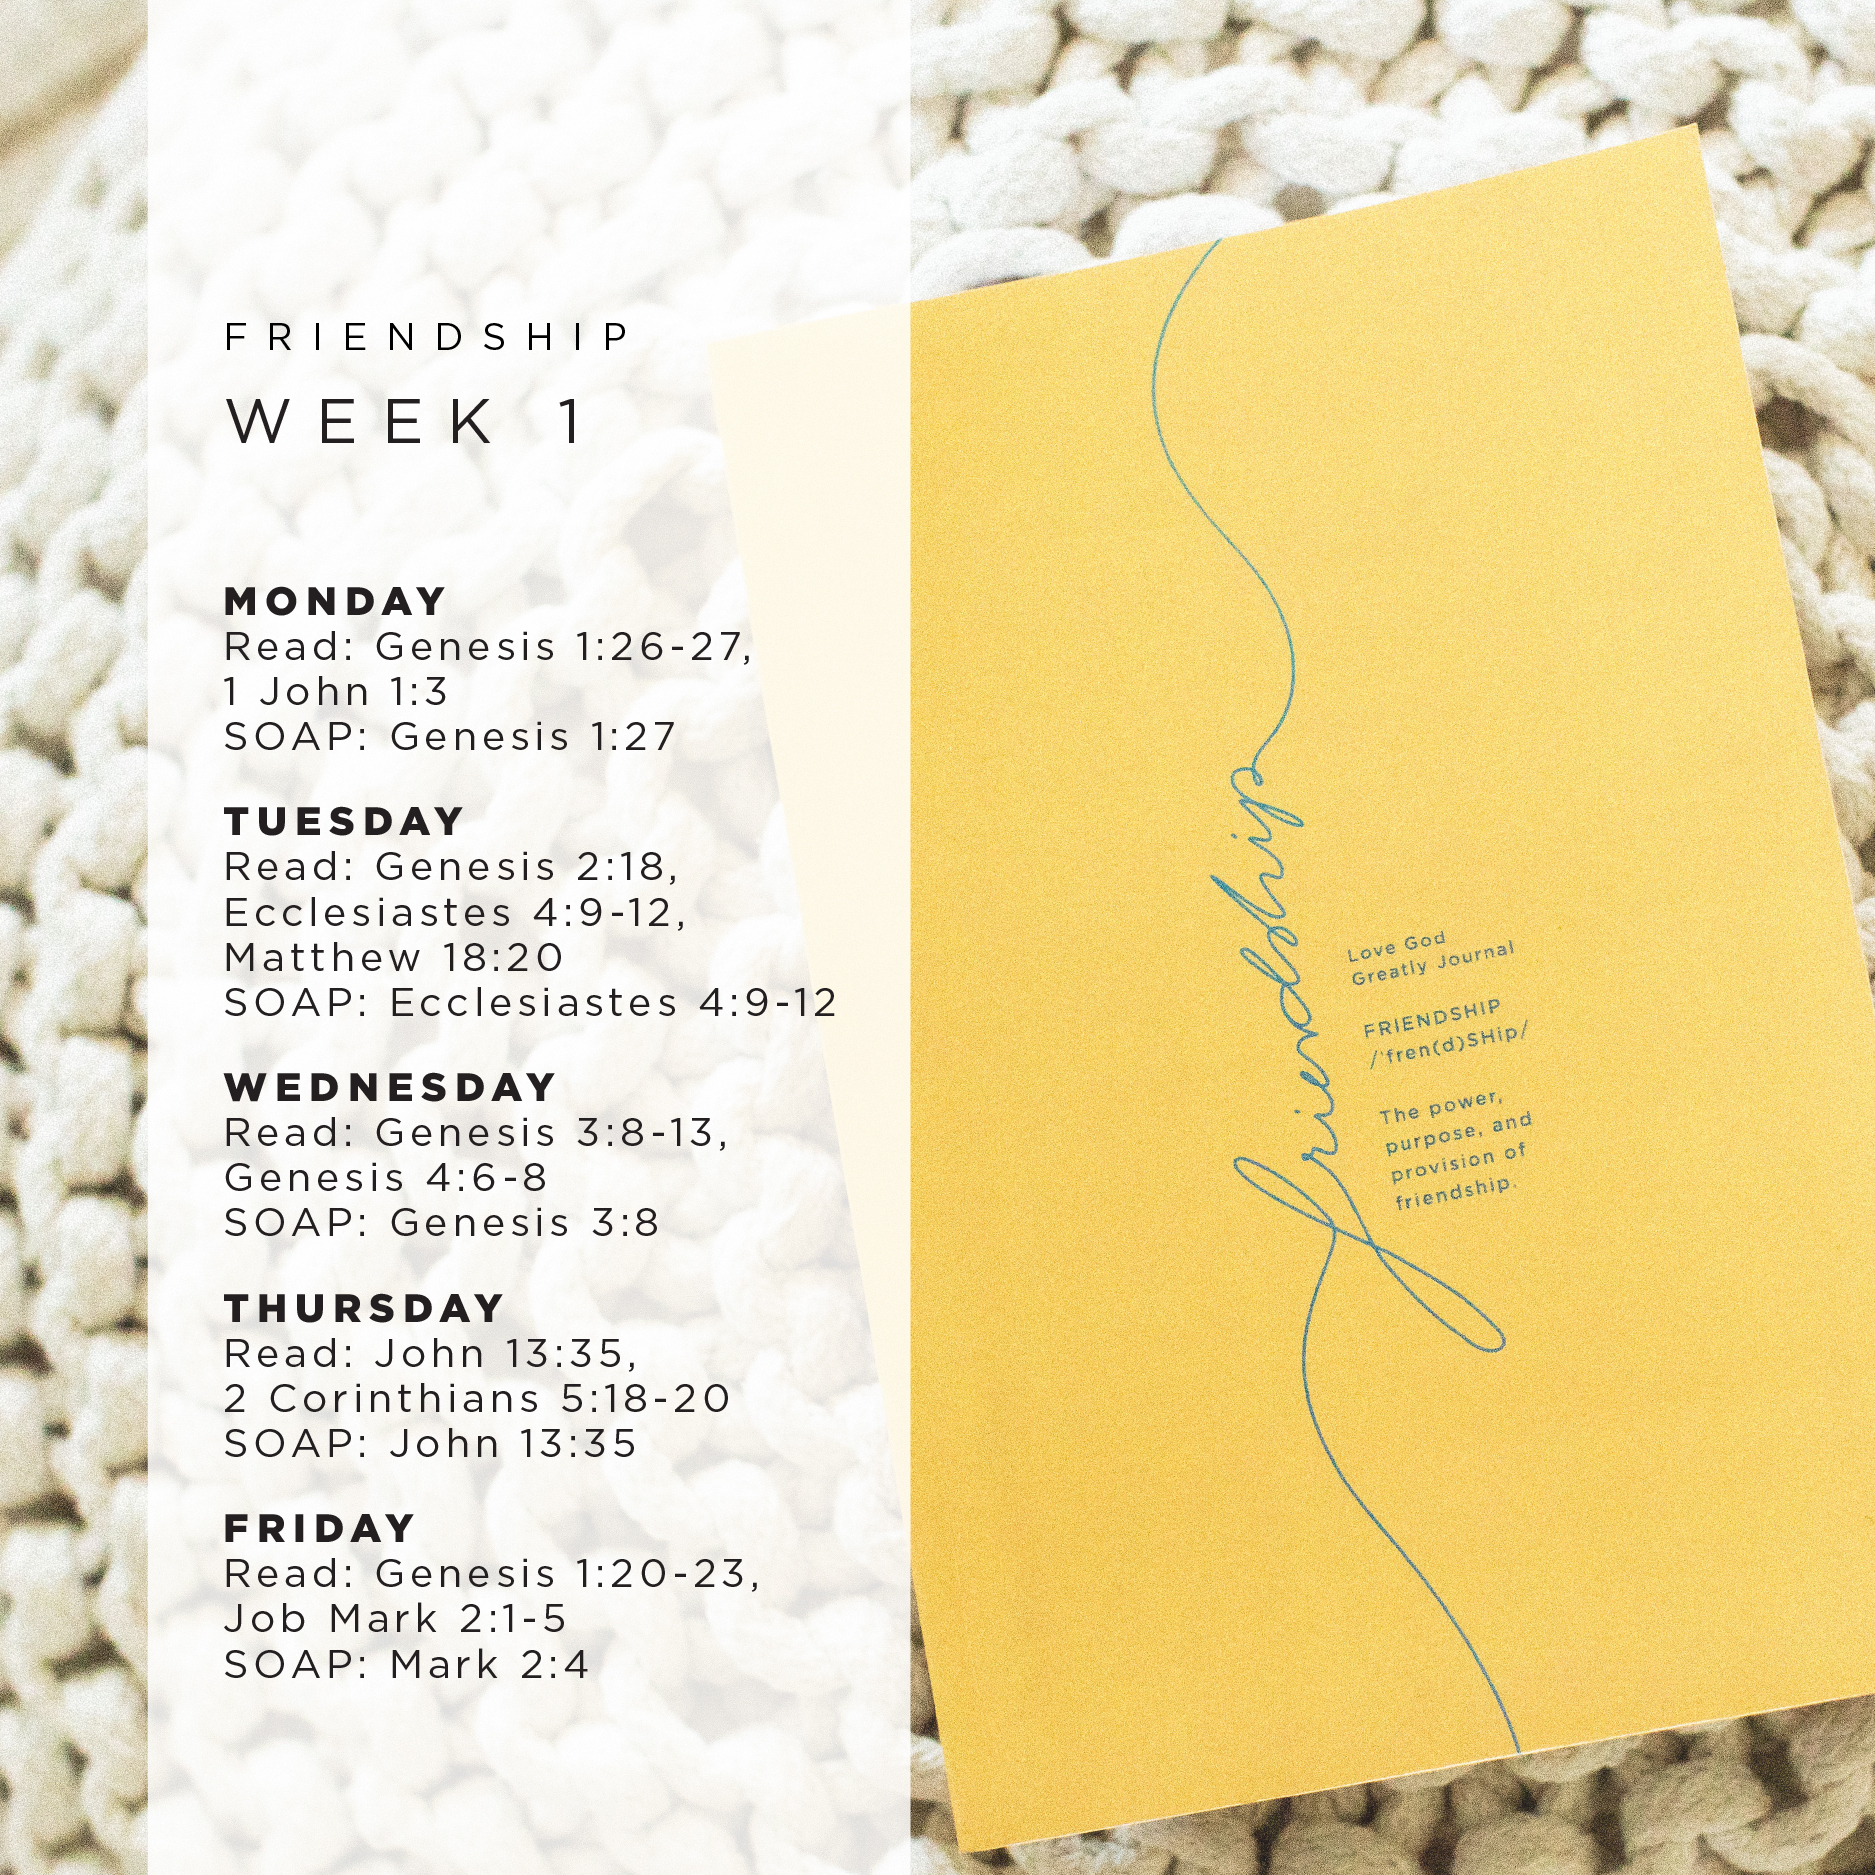 FRIENDSHIP
WEEK 1
MONDAY
Read: Genesis 1:26-27,
1 John 1:3
SOAP: Genesis 1:27
TUESDAY
Read: Genesis 2:18,
Ecclesiastes 4:9-12,
Matthew 18:20
SOAP: Ecclesiastes 4:9-12
WEDNESDAY
Read: Genesis 3:8-13,
Genesis 4:6-8
SOAP: Genesis 3:8
THURSDAY
Read: John 13:35,
2 Corinthians 5:18-20
SOAP: John 13:35
FRIDAY
Read: Genesis 1:20-23,
Job Mark 2:1-5
SOAP: Mark 2:4
friendship
Love God
Greatly Journal
FRIENDSHIP
/ˈfren(d)SHip/
The power,
purpose, and
provision of
friendship.